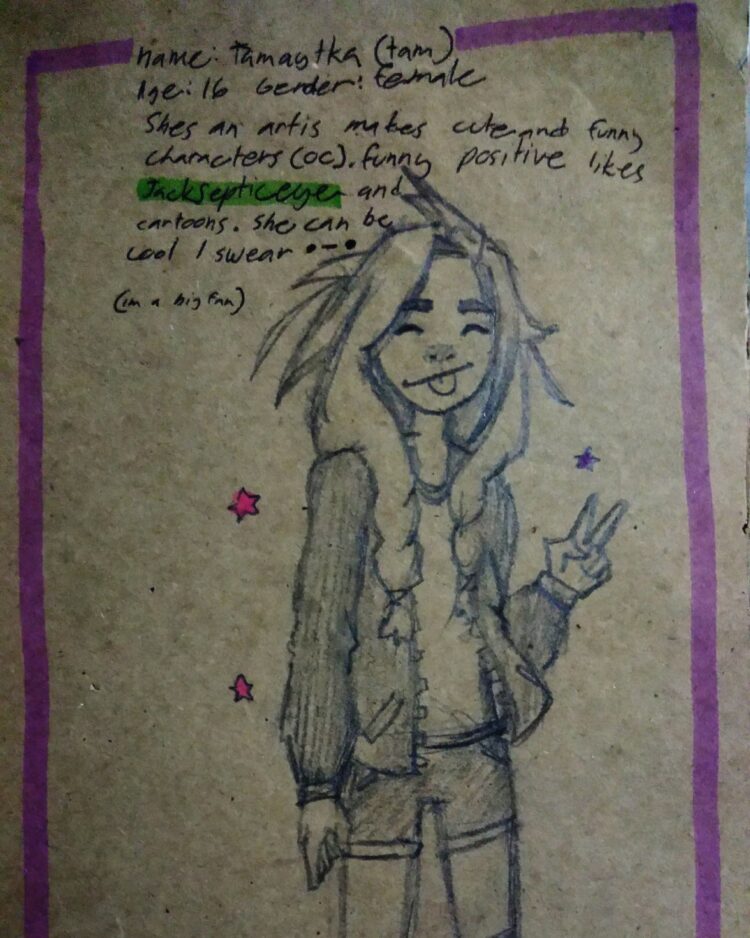 name: Tamaytka (tam)
Age: 16 Gender: female
Shes an artis makes cute and funny
characters (oc). funny positive likes
Jacksepticeye and
cartoons. she can be
cool I swear •-•
(im a big fan)